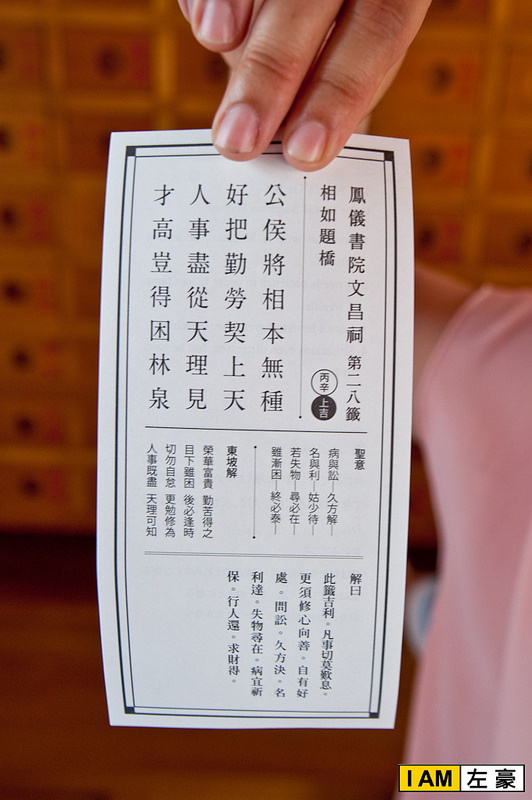 鳳儀書院文昌祠 第二八籤
相如題橋
丙辛
上吉
公侯將相本無種
好把勤勞契上天
人事盡從天理見
才高豈得困林泉
聖意
病與訟—久方解—
名與利—姑少待—
若失物—尋必在—
雖漸困—終必泰—
東坡解
榮華富貴 勤苦得之
目下雖困 後必逢時
切勿自怠 更勉修為
人事既盡 天理可知
解曰
此籤吉利。凡事切莫歎息。
更須修心向善。自有好
處。問訟。久方決。名
利達。失物尋在。病宜祈
保。行人還。求財得。
I AM 左豪